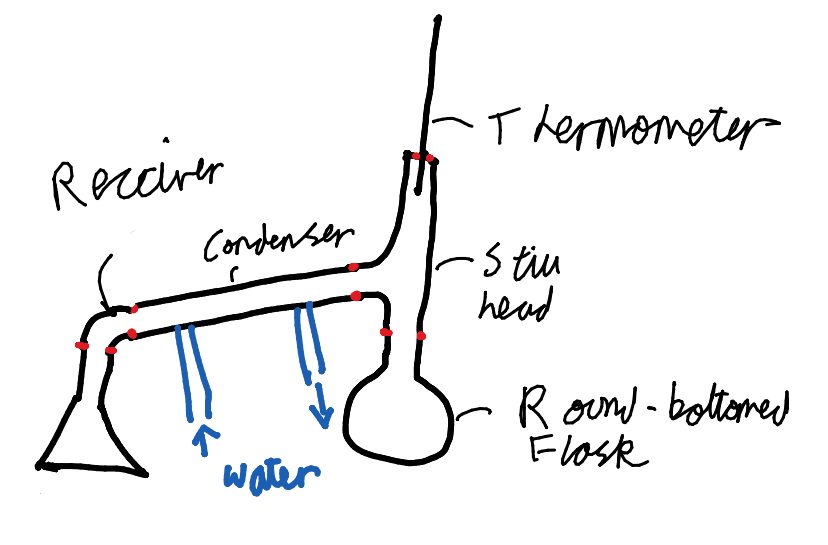 Thermometer
Receiver
Condenser
Still
head
Round-bottomed
Flask
water